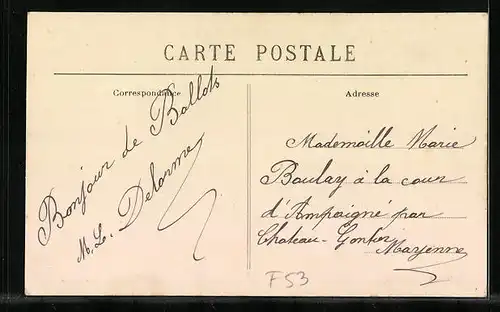 CARTE POSTALE
Correspondance
Adresse
Bonjour de Ballots
M. L. Delorme
Mademoille Marie
Boulay à la cour
d'Ampoigné par
Chateau-Gontier
Mayenne
F53